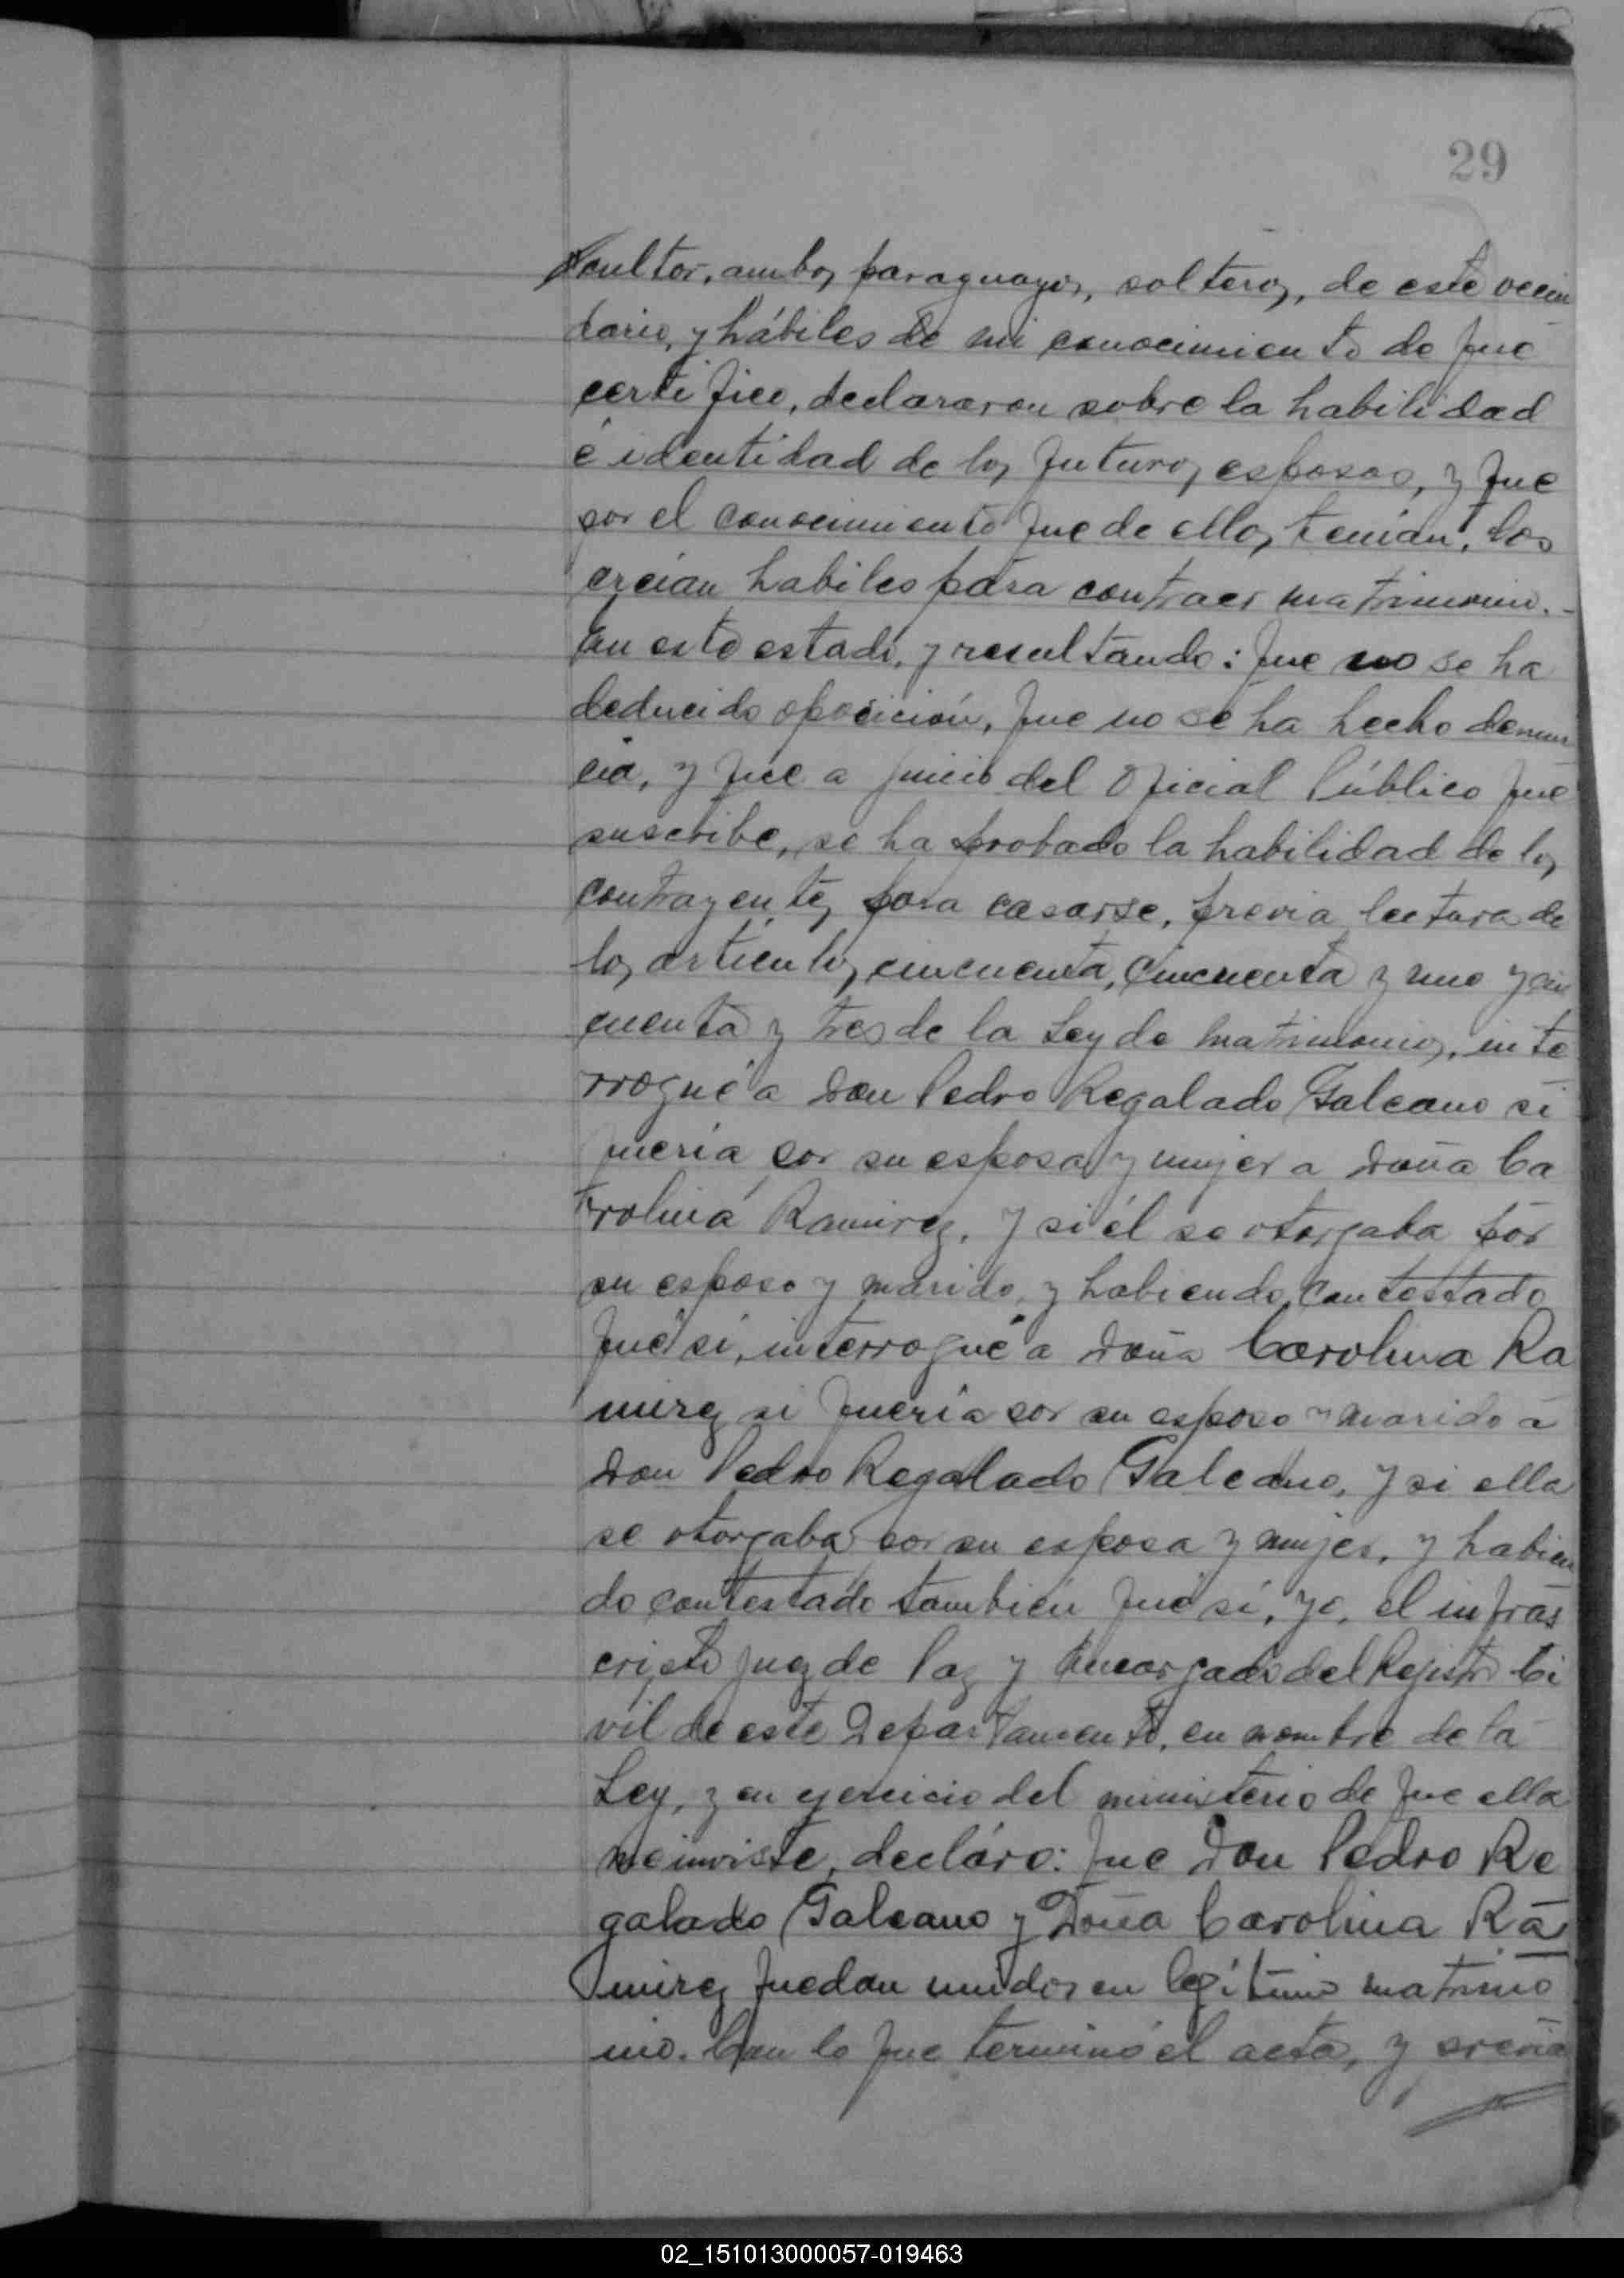 29
cultor, ambos paraguayos, solteros, de este vecin
dario, y hábiles de mi conocimiento de que
certifico, declararon sobre la habilidad
é identidad de los futuros esposos, y que
por el conocimiento que de ellos tenían, los
creían habiles para contraer matrimonio.-
En este estado, y resultando: que no se ha
deducido oposición, que no se ha hecho denun
cia, y que a juicio del Oficial Público que
suscribe, se ha probado la habilidad de los
contrayentes para casarse, previa lectura de
los artículos cincuenta, cincuenta y uno y cin
cuenta y tres de la Ley de matrimonios, inte
rrogué a Don Pedro Regalado Galeano si
quería por su esposa y mujer a Doña Ca
rolina Ramirez, y si él se otorgaba por
su esposo y marido, y habiendo contestado
que sí, interrogué a Doña Carolina Ra
mirez si quería por su esposo y marido a
Don Pedro Regalado Galeano, y si ella
se otorgaba por su esposa y mujer, y habien
do contestado también que sí, yo, el infras
cripto Juez de Paz y Encargado del Registro Ci
vil de este Departamento, en nombre de la
Ley, y en ejercicio del ministerio de que ella
me inviste, declaro: que Don Pedro Re
galado Galeano y Doña Carolina Ra
mirez quedan unidos en legítimo matrimo
nio. Con lo que terminó el acta, y previa
02_151013000057-019463